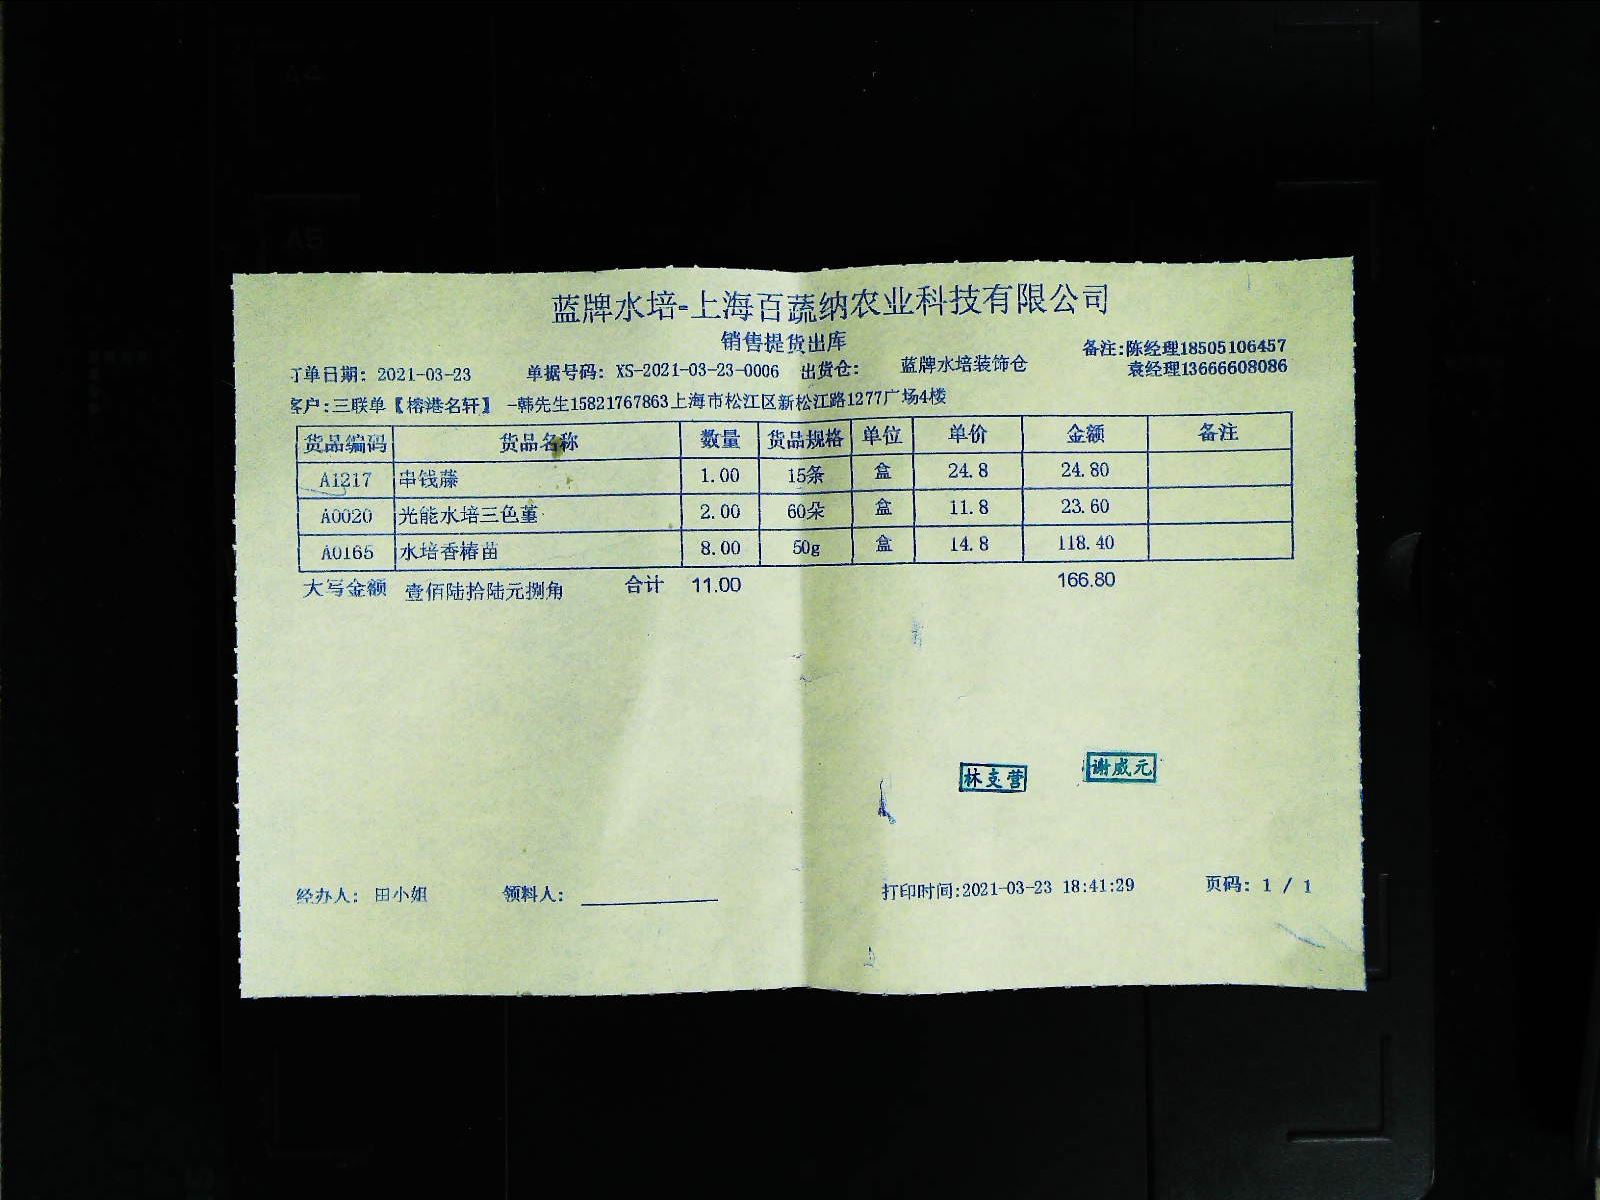 蓝牌水培-上海百蔬纳农业科技有限公司
销售提货出库
备注:陈经理18505106457
袁经理13666608086
订单日期: 2021-03-23 单据号码: XS-2021-03-23-0006 出货仓: 蓝牌水培装饰仓
客户:三联单【榕港名轩】 -韩先生15821767863上海市松江区新松江路1277广场4楼
货品编码 货品名称 数量 货品规格 单位 单价 金额 备注
A1217 串钱藤 1.00 15条 盒 24.8 24.80
A0020 光能水培三色堇 2.00 60朵 盒 11.8 23.60
A0165 水培香椿苗 8.00 50g 盒 14.8 118.40
大写金额 壹佰陆拾陆元捌角 合计 11.00 166.80
林支营 谢威元
经办人: 田小姐 领料人: 打印时间:2021-03-23 18:41:29 页码: 1 / 1
A5